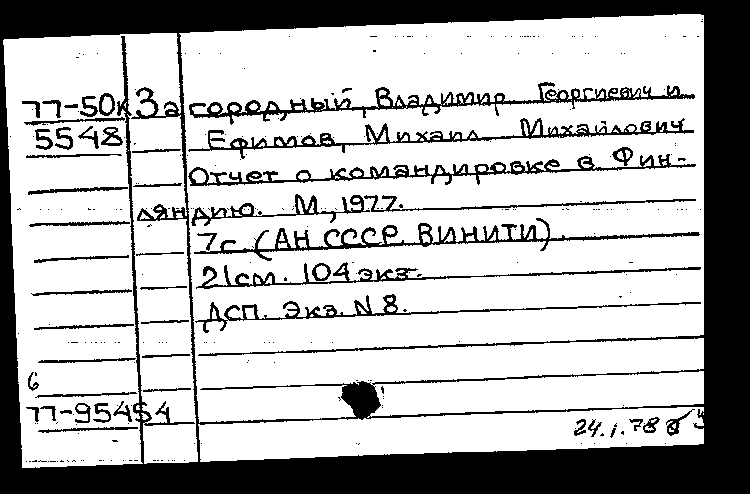 77-50к Загородный, Владимир Георгиевич и
5548 Ефимов, Михаил Михайлович
Отчет о командировке в Фин-
ляндию. М., 1977.
7с. (АН СССР. ВИНИТИ).
21см. 104 экз.
ДСП. Экз. N 8.
б
77-95454
24.1.78